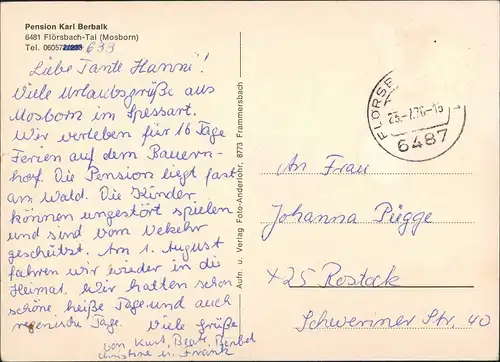 Pension Karl Berbalk
6481 Flörsbach-Tal (Mosborn)
Tel. 06057/ 633
Liebe Tante Hanni!
Viele Urlaubsgrüße aus
Mosborn im Spessart.
Wir verleben für 16 Tage
Ferien auf dem Bauern-
hof. Die Pension liegt fast
am Wald. Die Kinder
können ungestört spielen
und sind vom Vekehr
geschützt. Am 1. August
fahren wir wieder in die
Heimat. Wir hatten schon
schöne, heiße Tage und auch
regnerische Tage. Viele Grüße
von Kurt, Beate, Bärbel
Christine u. Frank
Aufn. u. Verlag Foto-Anderlohr, 8773 Frammersbach
FLÖRSB
23.-7.76-15
6487
An Frau
Johanna Piegge
X25 Rostock
Schweriner Str. 40